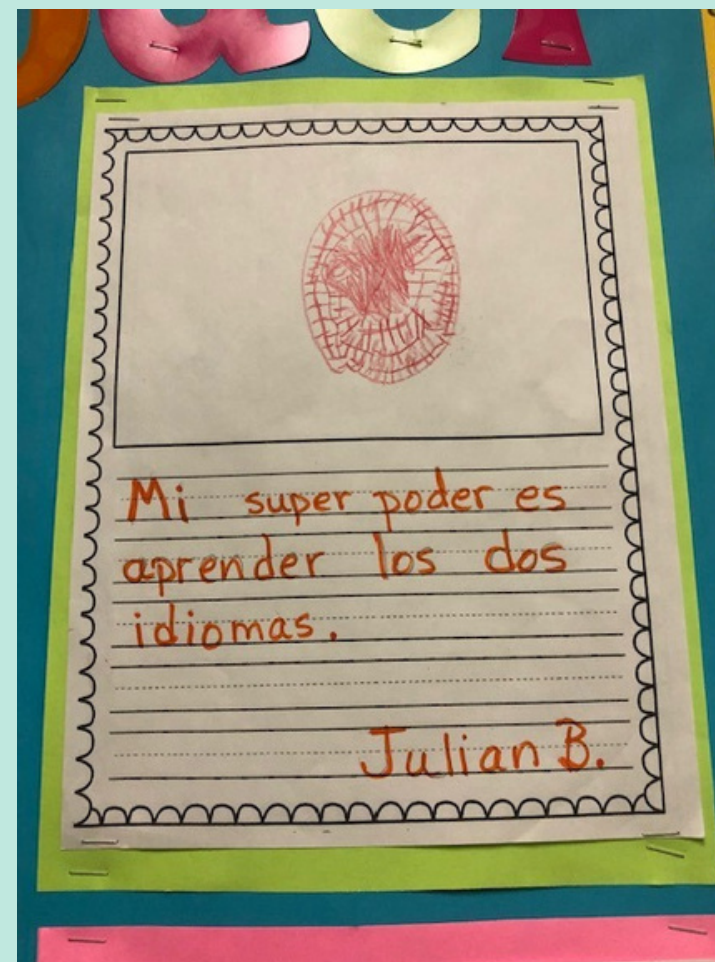 Mi super poder es
aprender los dos
idiomas.
Julian B.